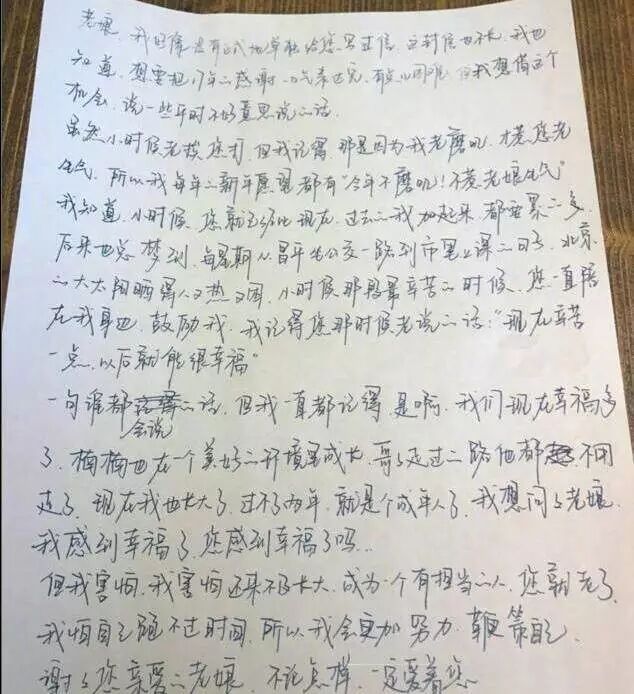 老娘，我好像没有正式地单独给您写过信，这封信也不长，我也
知道，想要把17年的感谢一口气表达完，有点儿困难，但我想借这个
机会，说一些平时不好意思说的话。
虽然小时候老挨您打，但我记得，那是因为我老磨叽，才惹您老
生气，所以我每年的新年愿望都有“今年不磨叽！不惹老娘生气”
我知道，小时候，您就已经比现在、过去的我加起来，都要累的多，
后来也总梦到，每星期从昌平坐公交一路到市里上课的日子，北京
的大太阳晒得人又热又困，小时候那段最辛苦的时候，您一直陪
在我身边，鼓励我，我记得您那时候老说的话：“现在辛苦
一点，以后就能很幸福”
一句谁都会说的话，但我一直都记得，是啊，我们现在幸福多
了，楠楠也在一个美好的环境里成长，哥哥走过的路他都不用
走了，现在我也长大了，过不了两年，就是个成年人了，我想问问老娘，
我感到幸福了，您感到幸福了吗...
但我害怕，我害怕还来不及长大，成为一个有担当的人，您就老了，
我怕自己跑不过时间，所以我会更加努力，鞭策自己，
谢谢您亲爱的老娘，不论怎样，一定爱着您